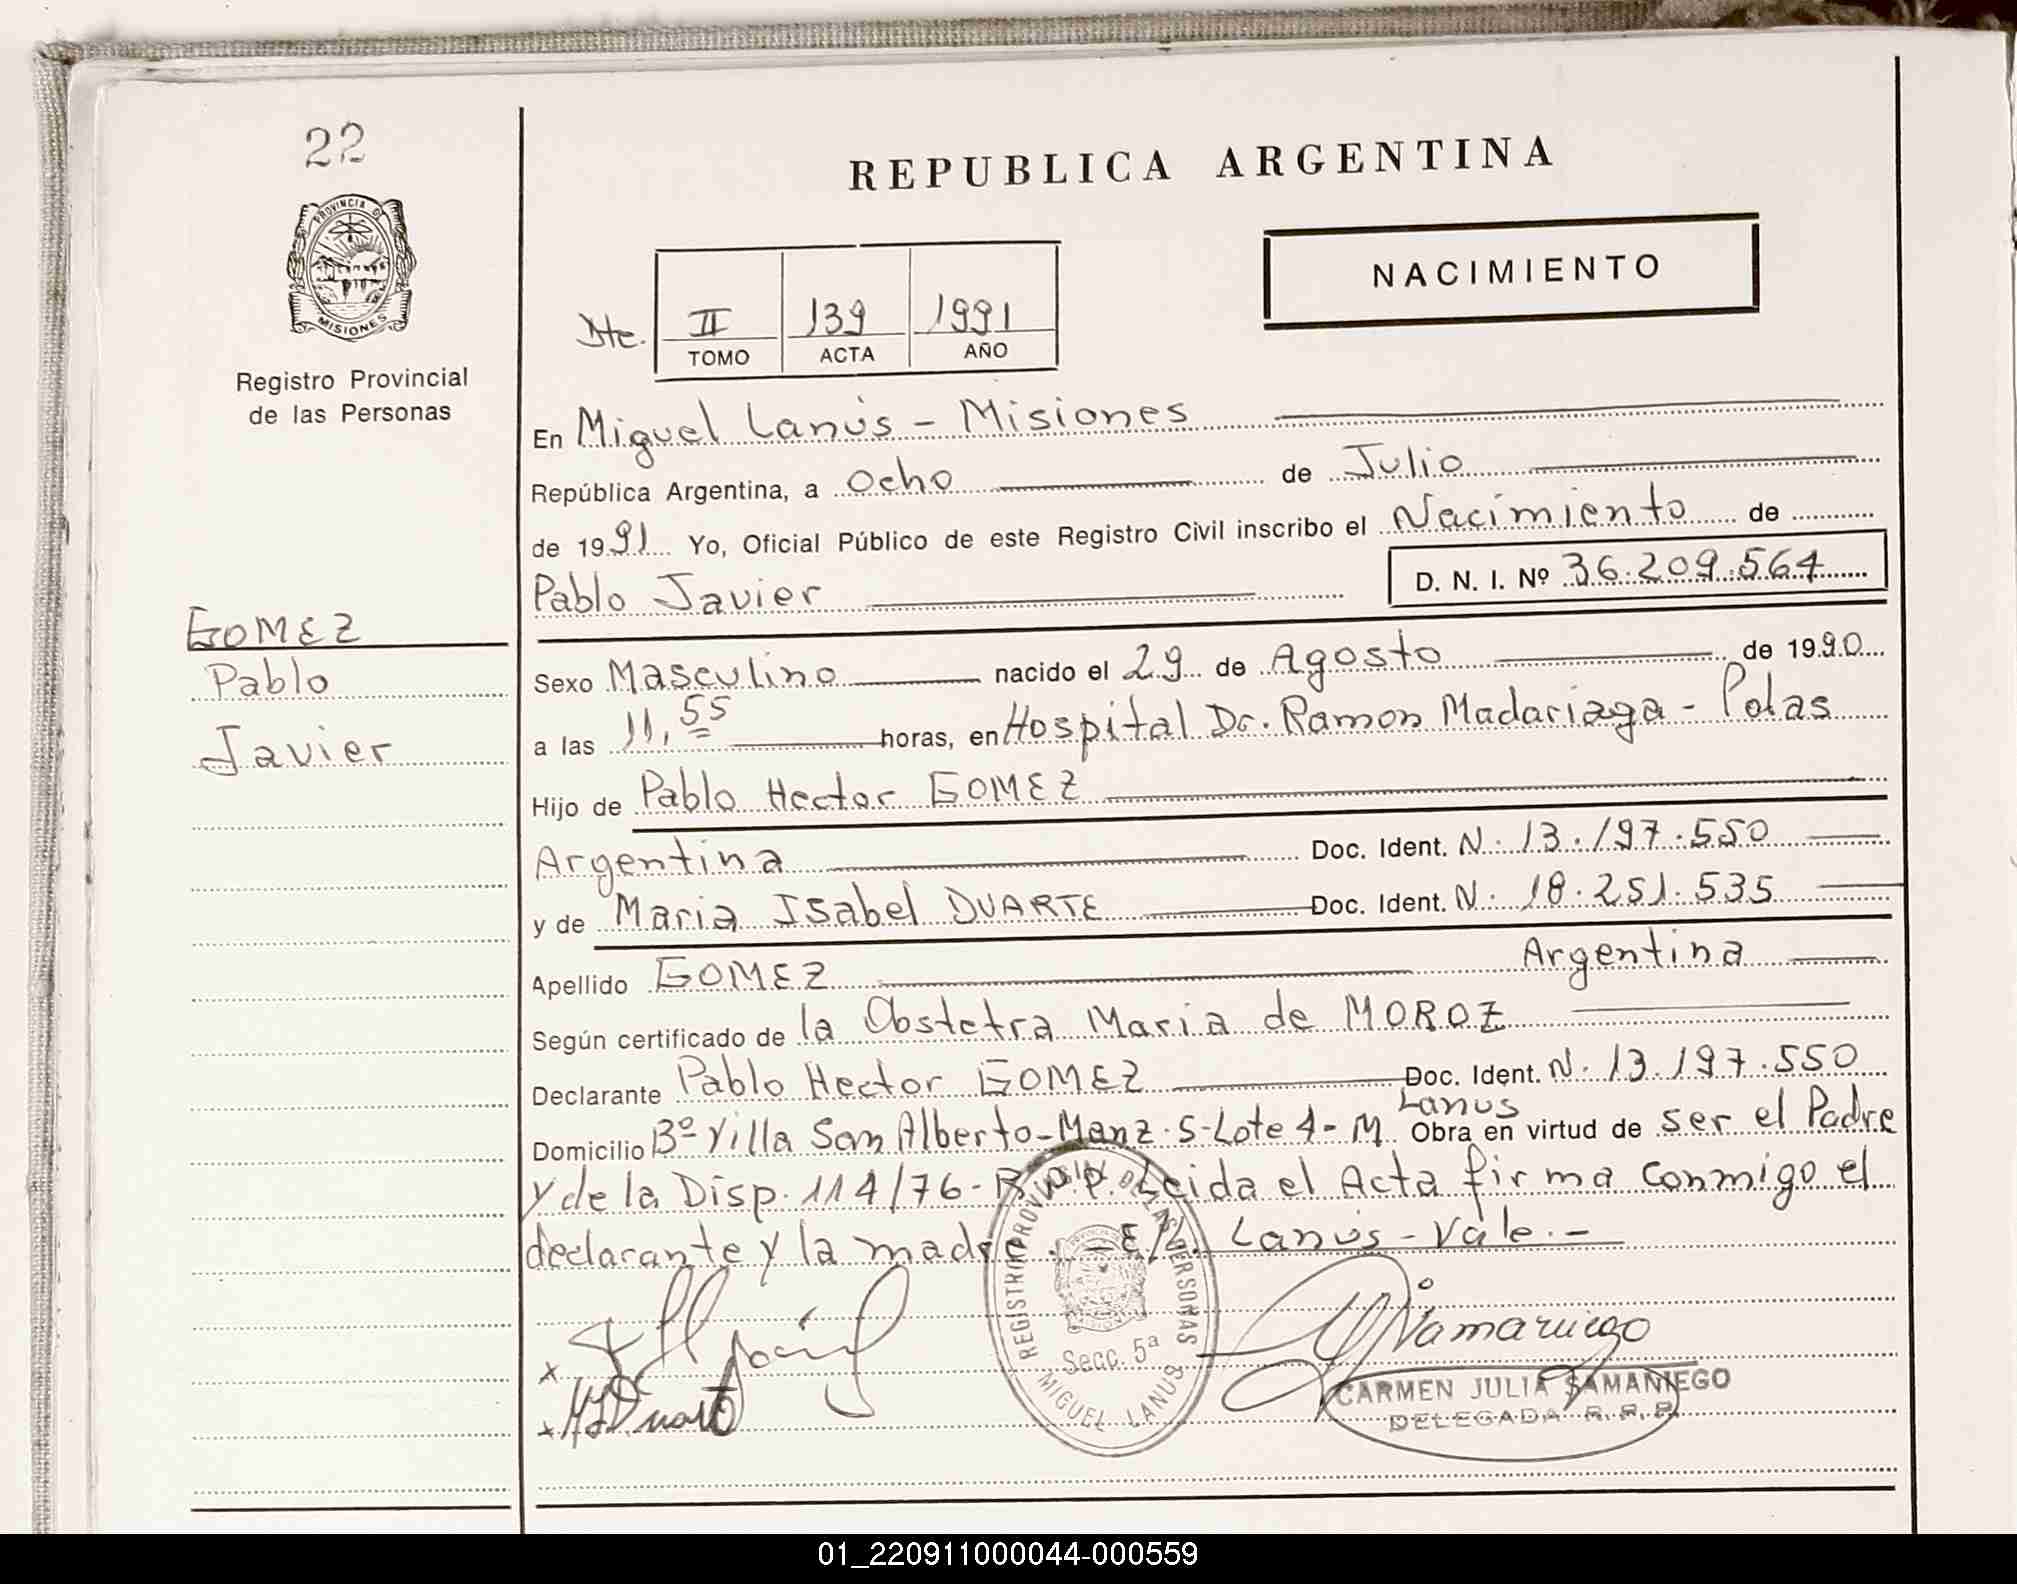 22
PROVINCIA DE
MISIONES
Registro Provincial
de las Personas
GOMEZ
Pablo
Javier
REPUBLICA ARGENTINA
NACIMIENTO
Dte. II 139 1991
TOMO ACTA AÑO
En Miguel Lanús - Misiones
República Argentina, a Ocho de Julio
de 1991 Yo, Oficial Público de este Registro Civil inscribo el Nacimiento de
Pablo Javier D. N. I. Nº 36.209.564
Sexo Masculino nacido el 29 de Agosto de 1990
a las 11,55 horas, en Hospital Dr. Ramon Madariaga - Pdas
Hijo de Pablo Hector GOMEZ
Argentina Doc. Ident. N. 13.197.550
y de Maria Isabel DUARTE Doc. Ident. N. 18.251.535
Argentina
Apellido GOMEZ
Según certificado de la Obstetra Maria de MOROZ
Declarante Pablo Hector GOMEZ Doc. Ident. N. 13.197.550
Lanus
Domicilio Bº Villa San Alberto - Manz. 5 - Lote 4 - M. Obra en virtud de ser el Padre
y de la Disp. 114/76 - R.P.P. Leida el Acta firma conmigo el
declarante y la madre. - E/L. Lanús - Vale. -
REGISTRO PROVINCIAL DE LAS PERSONAS
Secc. 5ª
MIGUEL LANUS
x
x MIDuarte
Samaniego
CARMEN JULIA SAMANIEGO
DELEGADA R.P.P.
01_220911000044-000559